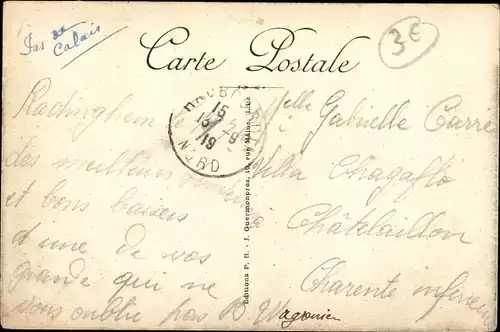 Pas de
Calais
3€
Carte Postale
15
13-9
19
NORD
Radinghem
des meilleurs
et bons baisers
d'une de vos
grande qui ne
vous oublie pas B. Wagonier
Editions P. H. - J. Guermonprez, 10, rue Malus, Lille
Melle Gabrielle Carré
Villa Chagaflo
à
Châtelaillon
Charente inférieure